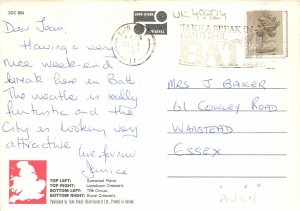 2DC 854
UK 49724
Dear Joan,
Having a very
nice week-end
break here in Bath
The weather is really
fantastic and the
City is looking very
attractive
Love from
Janice
TAKE A BREAK IN
MRS J BAKER
61 COWLEY ROAD
WANSTEAD
ESSEX
AJAN
TOP LEFT: Somerset Place.
TOP RIGHT: Lansdown Crescent.
BOTTOM LEFT: The Circus.
BOTTOM RIGHT: Royal Crescent.
JOHN HINDE
ORIGINAL